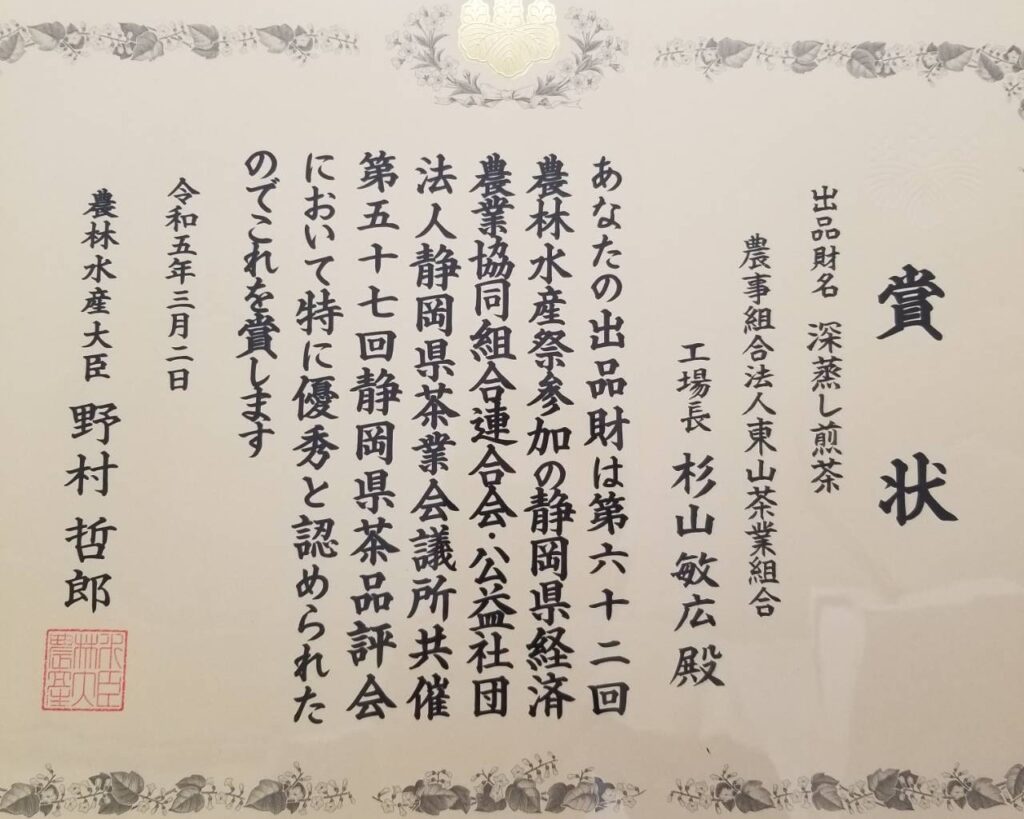 賞状
出品財名 深蒸し煎茶
農事組合法人東山茶業組合
工場長 杉山敏広殿
あなたの出品財は第六十二回
農林水産祭参加の静岡県経済
農業協同組合連合会・公益社団
法人静岡県茶業会議所共催
第五十七回静岡県茶品評会
において特に優秀と認められた
のでこれを賞します
令和五年三月二日
農林水産大臣 野村哲郎